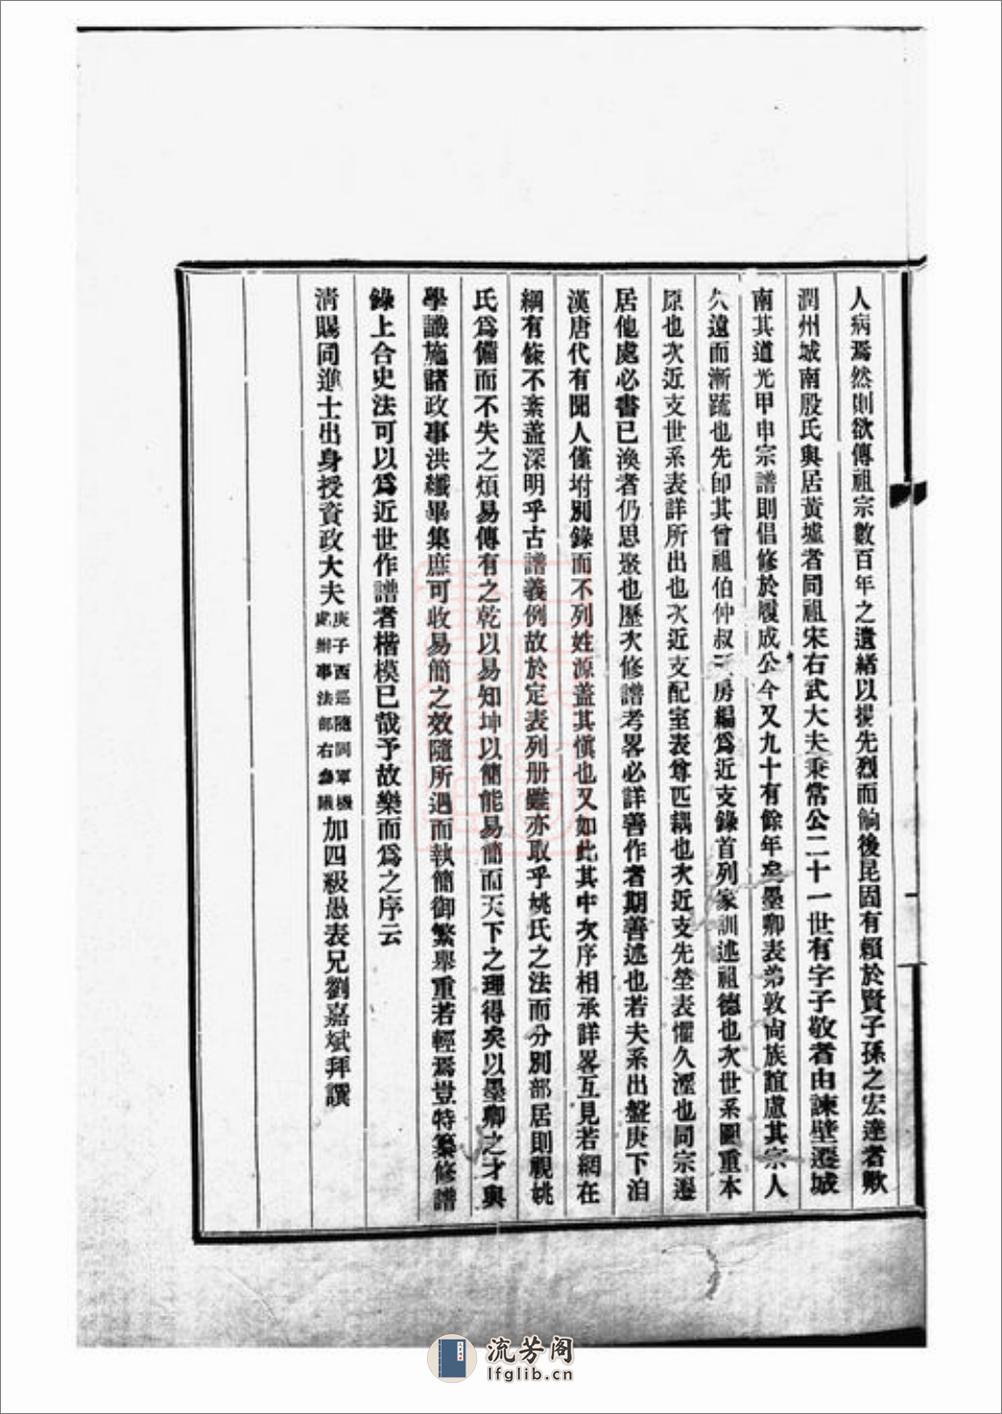 人病焉然則欲傳祖宗數百年之遺緒以揚先烈而餉後昆固有賴於賢子孫之宏達者歟
潤州城南殷氏與居黃墟者同祖宋右武大夫秉常公二十一世有字子敬者由諫壁遷城
南其道光甲申宗譜則倡修於履成公今又九十有餘年矣墨卿表弟敦尚族誼慮其宗人
久遠而漸疏也先即其曾祖伯仲叔三房編為近支錄首列家訓述祖德也次世系圖重本
原也次近支世系表詳所出也次近支配室表尊匹耦也次近支先塋表懼久湮也同宗遷
居他處必書已渙者仍思聚也歷次修譜考畧必詳善作者期善述也若夫系出盤庚下洎
漢唐代有聞人僅坿別錄而不列姓源蓋其愼也又如此其中次序相承詳畧互見若網在
綱有條不紊蓋深明乎古譜義例故於定表列册雖亦取乎姚氏之法而分別部居則視姚
氏為備而不失之煩易傳有之乾以易知坤以簡能易簡而天下之理得矣以墨卿之才與
學識施諸政事洪纖畢集庶可收易簡之效隨所遇而執簡御繁舉重若輕焉豈特纂修譜
錄上合史法可以為近世作譜者楷模已哉予故樂而為之序云
清賜同進士出身授資政大夫庚子西巡隨同軍機處辦事法部右參議加四級愚表兄劉嘉斌拜譔
流芳阁
lfglib.cn